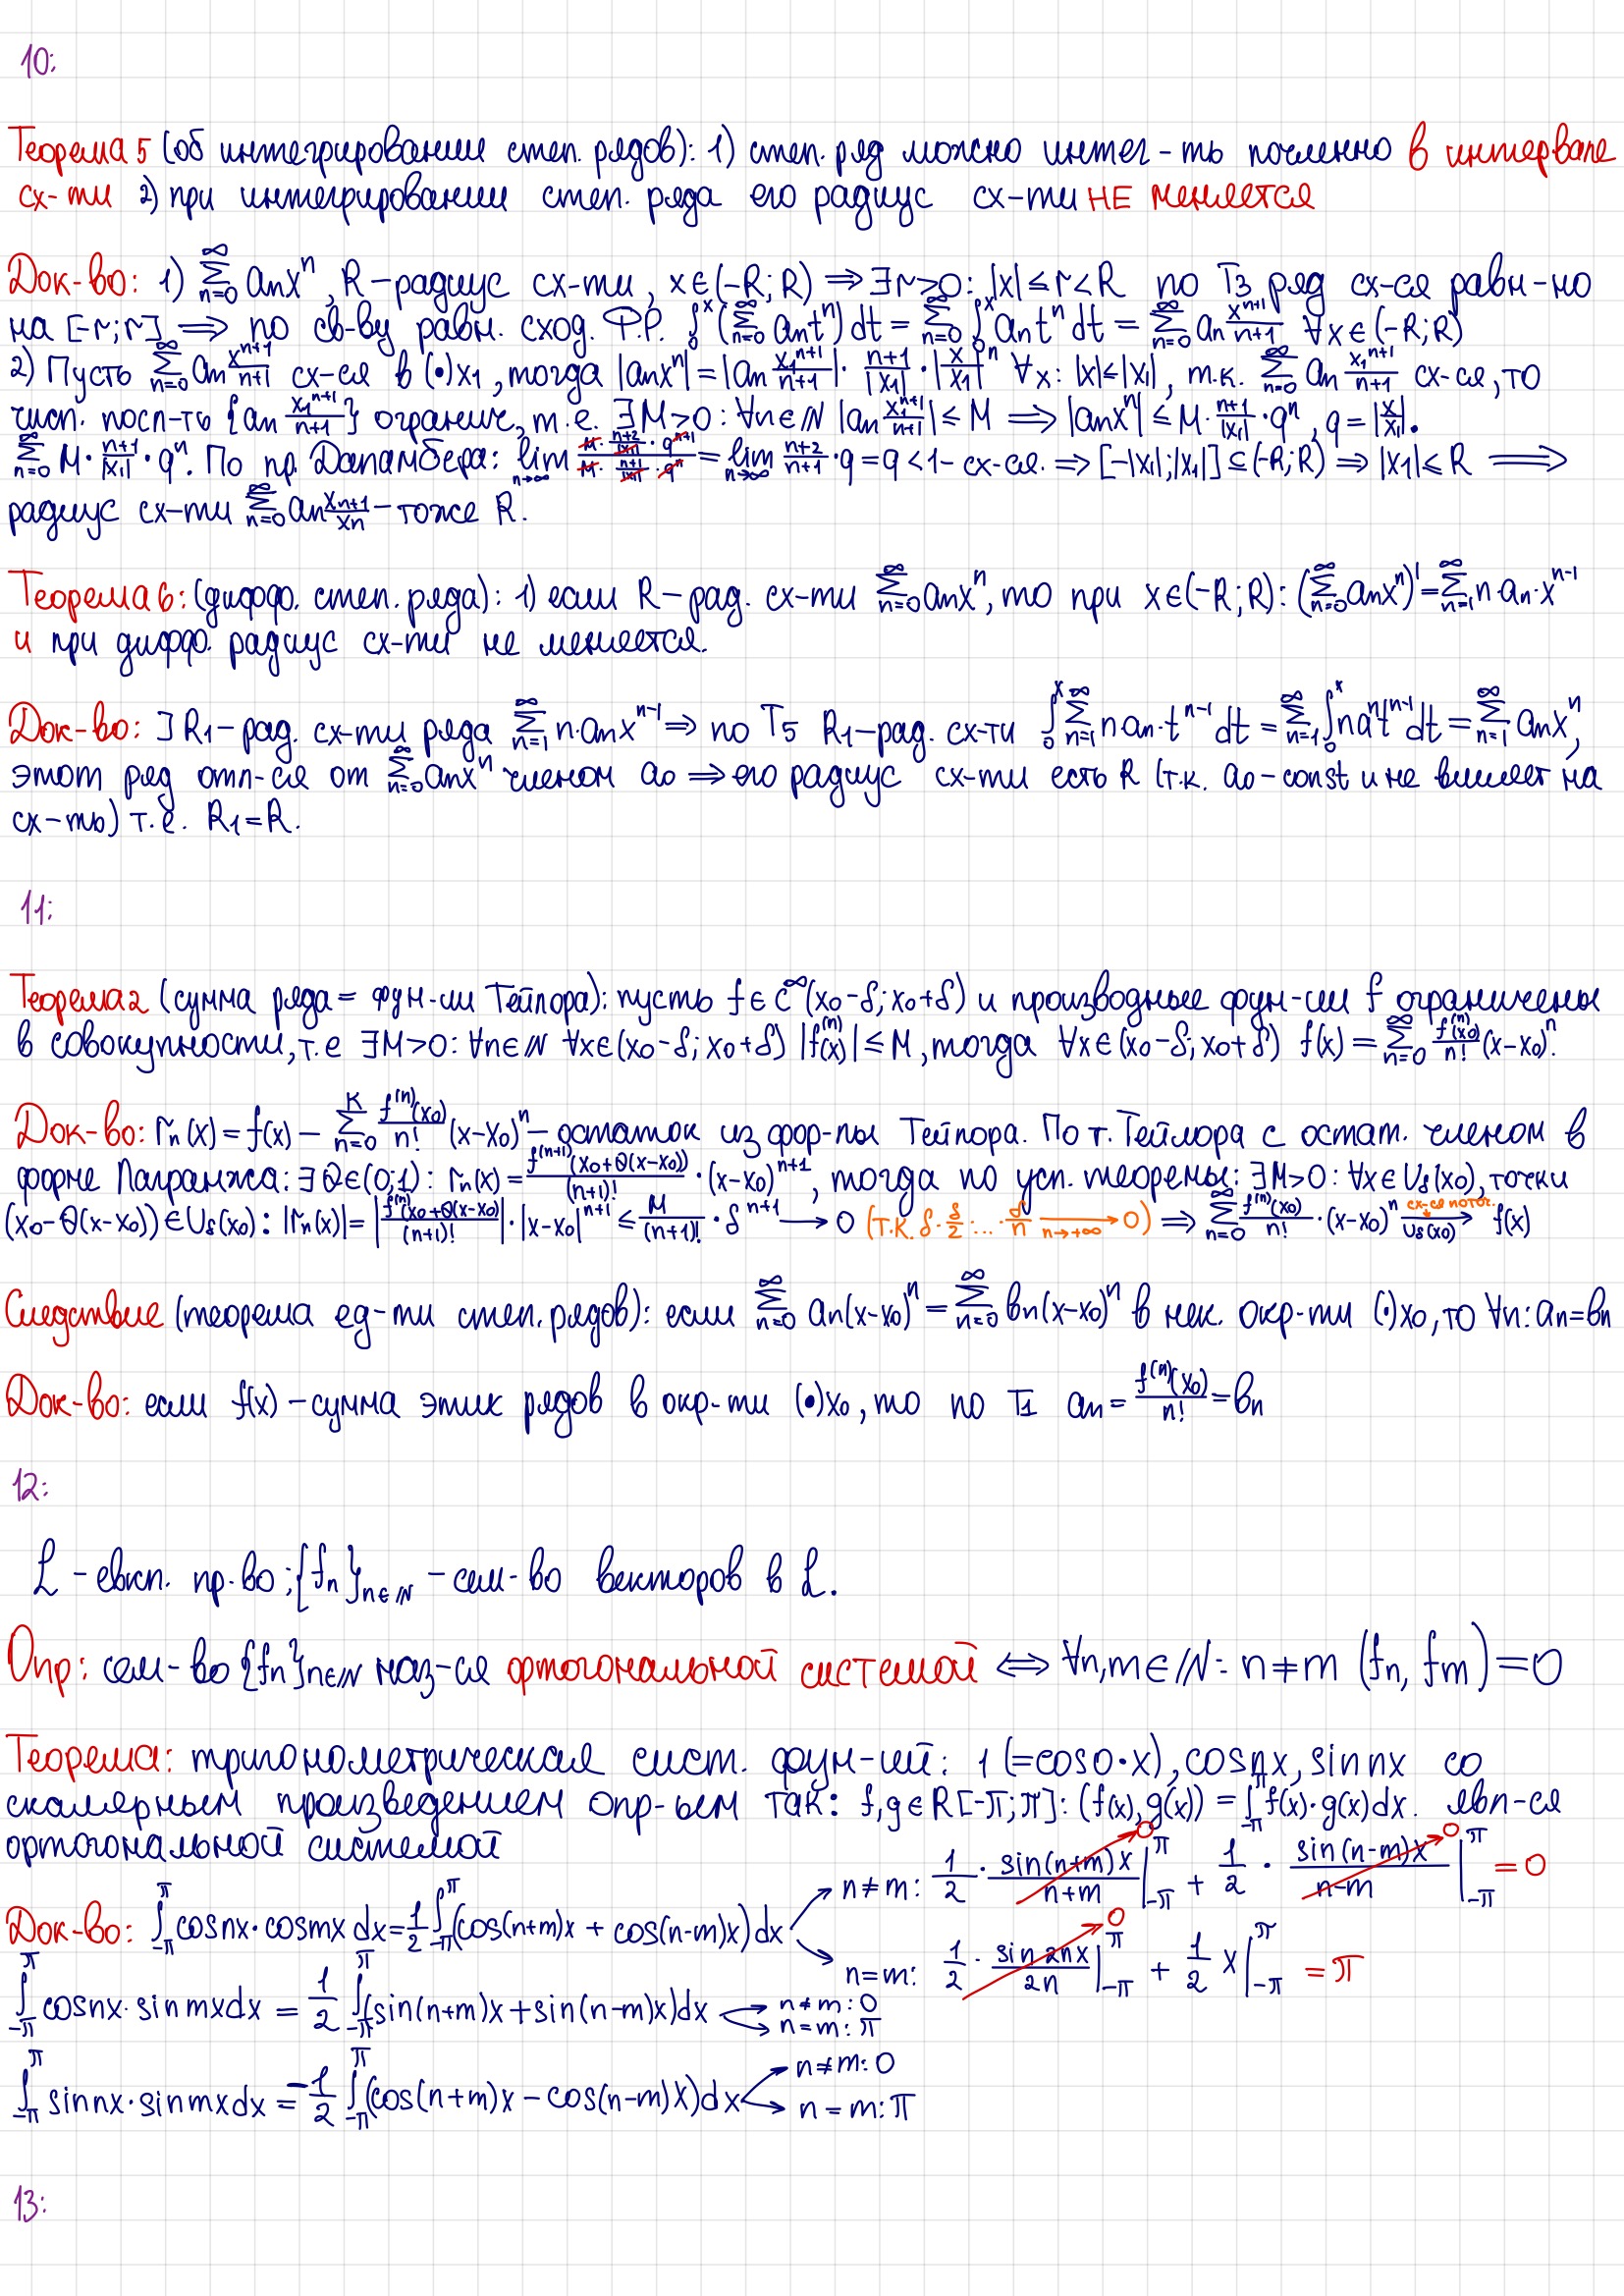 10:
Теорема 5 (об интегрировании степ. рядов): 1) степ. ряд можно интег-ть почленно в интервале
сх-ти 2) при интегрировании степ. ряда его радиус сх-ти НЕ меняется
Док-во: 1) ∑_{n=0}^{∞} aₙxⁿ, R – радиус сх-ти, x∈(-R;R) ⇒ ∃r>0: |x|≤r<R по Т3 ряд сх-ся равн-но
на [-r;r] ⇒ по св-ву равн. сход. Ф.Р. ∫_0^x (∑_{n=0}^{∞} aₙtⁿ) dt = ∑_{n=0}^{∞} ∫_0^x aₙtⁿ dt = ∑_{n=0}^{∞} aₙ x^{n+1}/(n+1) ∀x∈(-R;R)
2) Пусть ∑_{n=0}^{∞} aₙ x^{n+1}/(n+1) сх-ся в (•)x₁, тогда |aₙxⁿ| = |aₙ x₁^{n+1}/(n+1)| · (n+1)/|x₁| · |x/x₁|ⁿ ∀x: |x|≤|x₁|, т.к. ∑_{n=0}^{∞} aₙ x₁^{n+1}/(n+1) сх-ся, то
числ. посл-ть {aₙ x₁^{n+1}/(n+1)} огранич., т.е. ∃M>0: ∀n∈ℕ |aₙ x₁^{n+1}/(n+1)| ≤ M ⇒ |aₙxⁿ| ≤ M · (n+1)/|x₁| · qⁿ, q = |x/x₁|.
∑_{n=0}^{∞} M · (n+1)/|x₁| · qⁿ. По пр. Даламбера: lim_{n→∞} (M · (n+2)/|x₁| · q^{n+1})/(M · (n+1)/|x₁| · qⁿ) = lim_{n→∞} (n+2)/(n+1) · q = q < 1 – сх-ся. ⇒ [-|x₁|;|x₁|] ⊆ (-R;R) ⇒ |x₁| ≤ R ⟹
радиус сх-ти ∑_{n=0}^{∞} aₙ x_{n+1}/x_n – тоже R.
Теорема 6: (дифф. степ. ряда): 1) если R – рад. сх-ти ∑_{n=0}^{∞} aₙxⁿ, то при x∈(-R;R): (∑_{n=0}^{∞} aₙxⁿ)' = ∑_{n=1}^{∞} n·aₙ·x^{n-1}
и при дифф. радиус сх-ти не меняется.
Док-во: ] R₁ – рад. сх-ти ряда ∑_{n=1}^{∞} n·aₙx^{n-1} ⇒ по Т5 R₁ – рад. сх-ти ∫_0^x ∑_{n=1}^{∞} n aₙ·t^{n-1} dt = ∑_{n=1}^{∞} ∫_0^x naⁿt^{n-1} dt = ∑_{n=1}^{∞} aₙxⁿ,
этот ряд отл-ся от ∑_{n=0}^{∞} aₙxⁿ членом a₀ ⇒ его радиус сх-ти есть R (т.к. a₀ – const и не влияет на
сх-ть) т.е. R₁ = R.
11:
Теорема 2 (сумма ряда = фун-ии Тейлора): пусть f∈C^∞(x₀-δ; x₀+δ) и производные фун-ии f ограничены
в совокупности, т.е ∃M>0: ∀n∈ℕ ∀x∈(x₀-δ; x₀+δ) |f^{(n)}(x)| ≤ M, тогда ∀x∈(x₀-δ; x₀+δ) f(x) = ∑_{n=0}^{∞} f^{(n)}(x₀)/n! (x-x₀)ⁿ.
Док-во: rₙ(x) = f(x) – ∑_{n=0}^{K} f^{(n)}(x₀)/n! (x-x₀)ⁿ – остаток из фор-лы Тейлора. По т. Тейлора с остат. членом в
форме Лагранжа: ∃θ∈(0;1): rₙ(x) = f^{(n+1)}(x₀+θ(x-x₀))/(n+1)! · (x-x₀)^{n+1}, тогда по усл. теоремы: ∃M>0: ∀x∈U_δ(x₀), точки
(x₀-θ(x-x₀)) ∈ U_δ(x₀): |rₙ(x)| = |f^{(n)}(x₀+θ(x-x₀))/(n+1)!| · |x-x₀|^{n+1} ≤ M/(n+1)! · δ^{n+1} → 0 (т.к. δ·δ/2·...·δ/n →_{n→+∞} 0) ⇒ ∑_{n=0}^{∞} f^{(n)}(x₀)/n! · (x-x₀)ⁿ сх-ся поточ. →_{U_δ(x₀)} f(x)
Следствие (теорема ед-ти степ. рядов): если ∑_{n=0}^{∞} aₙ(x-x₀)ⁿ = ∑_{n=0}^{∞} bₙ(x-x₀)ⁿ в нек. окр-ти (•)x₀, то ∀n: aₙ=bₙ
Док-во: если f(x) – сумма этих рядов в окр-ти (•)x₀, то по Т1 aₙ = f^{(n)}(x₀)/n! = bₙ
12:
L – евкл. пр-во; {fₙ}_{n∈ℕ} – сем-во векторов в L.
Опр: сем-во {fₙ}_{n∈ℕ} наз-ся ортогональной системой ⟺ ∀n,m∈ℕ: n≠m (fₙ, fₘ) = 0
Теорема: тригонометрическая сист. фун-ий: 1 (=cos0·x), cosnx, sinnx со
скалярным произведением опр-ым так: f,g∈R[-π;π]: (f(x),g(x)) = ∫_{-π}^{π} f(x)·g(x)dx. явл-ся
ортогональной системой
Док-во: ∫_{-π}^{π} cosnx·cosmx dx = 1/2 ∫_{-π}^{π} (cos(n+m)x + cos(n-m)x)dx
n≠m: 1/2 · sin(n+m)x/(n+m) |_{-π}^{π} 0 + 1/2 · sin(n-m)x/(n-m) 0 |_{-π}^{π} = 0
n=m: 1/2 · sin2nx/2n 0 |_{-π}^{π} + 1/2 x |_{-π}^{π} = π
∫_{-π}^{π} cosnx·sinmxdx = 1/2 ∫_{-π}^{π} (sin(n+m)x + sin(n-m)x)dx n≠m: 0
n=m: π
∫_{-π}^{π} sinnx·sinmxdx = -1/2 ∫_{-π}^{π} (cos(n+m)x – cos(n-m)x)dx n≠m: 0
n=m: π
13: